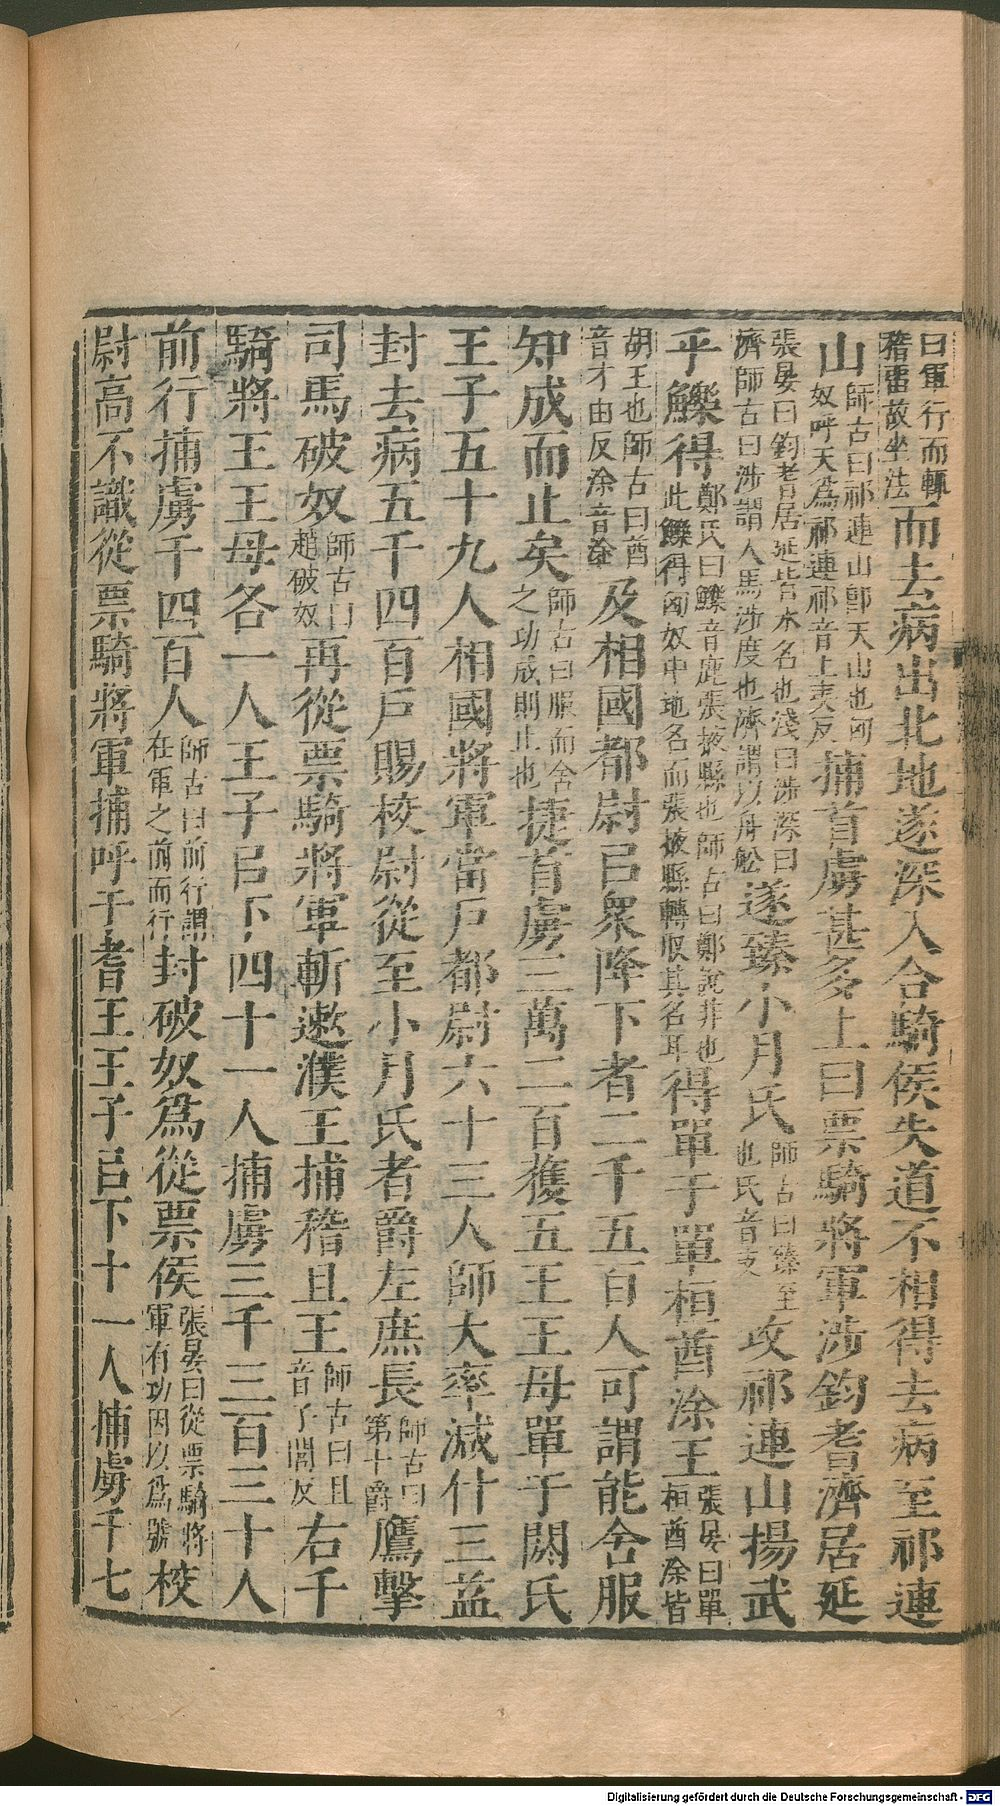 曰軍行而輒稽畱故坐法而去病出北地遂深入合騎侯失道不相得去病至祁連
山師古曰祁連山卽天山也匈奴呼天爲祁連祁音上夷反捕首虜甚多上曰票騎將軍涉鈞耆濟居延
張晏曰鈞耆居延皆水名也淺曰涉深曰濟師古曰涉謂人馬涉度也濟謂以舟舩遂臻小月氏師古曰臻至也氏音支攻祁連山揚武
乎鱳得鄭氏曰鱳音鹿張掖縣也師古曰鄭說非也此鱳得匈奴中地名而張掖縣轉取其名耳得單于單桓酋涂王張晏曰單桓酋涂皆
胡王也師古曰酋音才由反涂音塗及相國都尉㠯衆降下者二千五百人可謂能舍服
知成而止矣師古曰服而舍之功成則止也捷首虜三萬二百獲五王王母單于閼氏
王子五十九人相國將軍當戶都尉六十三人師大率減什三益
封去病五千四百戶賜校尉從至小月氏者爵左庶長師古曰第十爵鷹擊
司馬破奴師古曰趙破奴再從票騎將軍斬遫濮王捕稽且王師古曰且音子閭反右千
騎將王王母各一人王子㠯下四十一人捕虜三千三百三十人
前行捕虜千四百人師古曰前行謂在軍之前而行封破奴爲從票侯張晏曰從票騎將軍有功因以爲號校
尉高不識從票騎將軍捕呼于耆王王子㠯下十一人捕虜千七
Digitalisierung gefördert durch die Deutsche Forschungsgemeinschaft - DFG